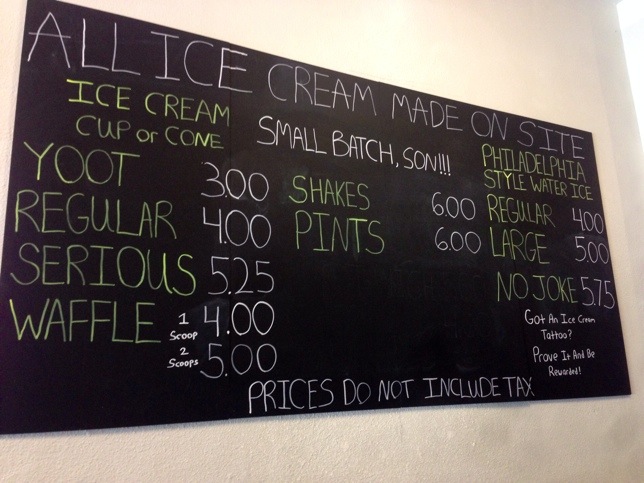 ALL ICE CREAM MADE ON SITE
ICE CREAM
CUP or CONE
YOOT 3.00
REGULAR 4.00
SERIOUS 5.25
WAFFLE 1 Scoop 4.00
2 Scoops 5.00
SMALL BATCH, SON!!!
SHAKES 6.00
PINTS 6.00
PHILADELPHIA
STYLE WATER ICE
REGULAR 4.00
LARGE 5.00
NO JOKE 5.75
Got An Ice Cream
Tattoo?
Prove It And Be
Rewarded!
PRICES DO NOT INCLUDE TAX